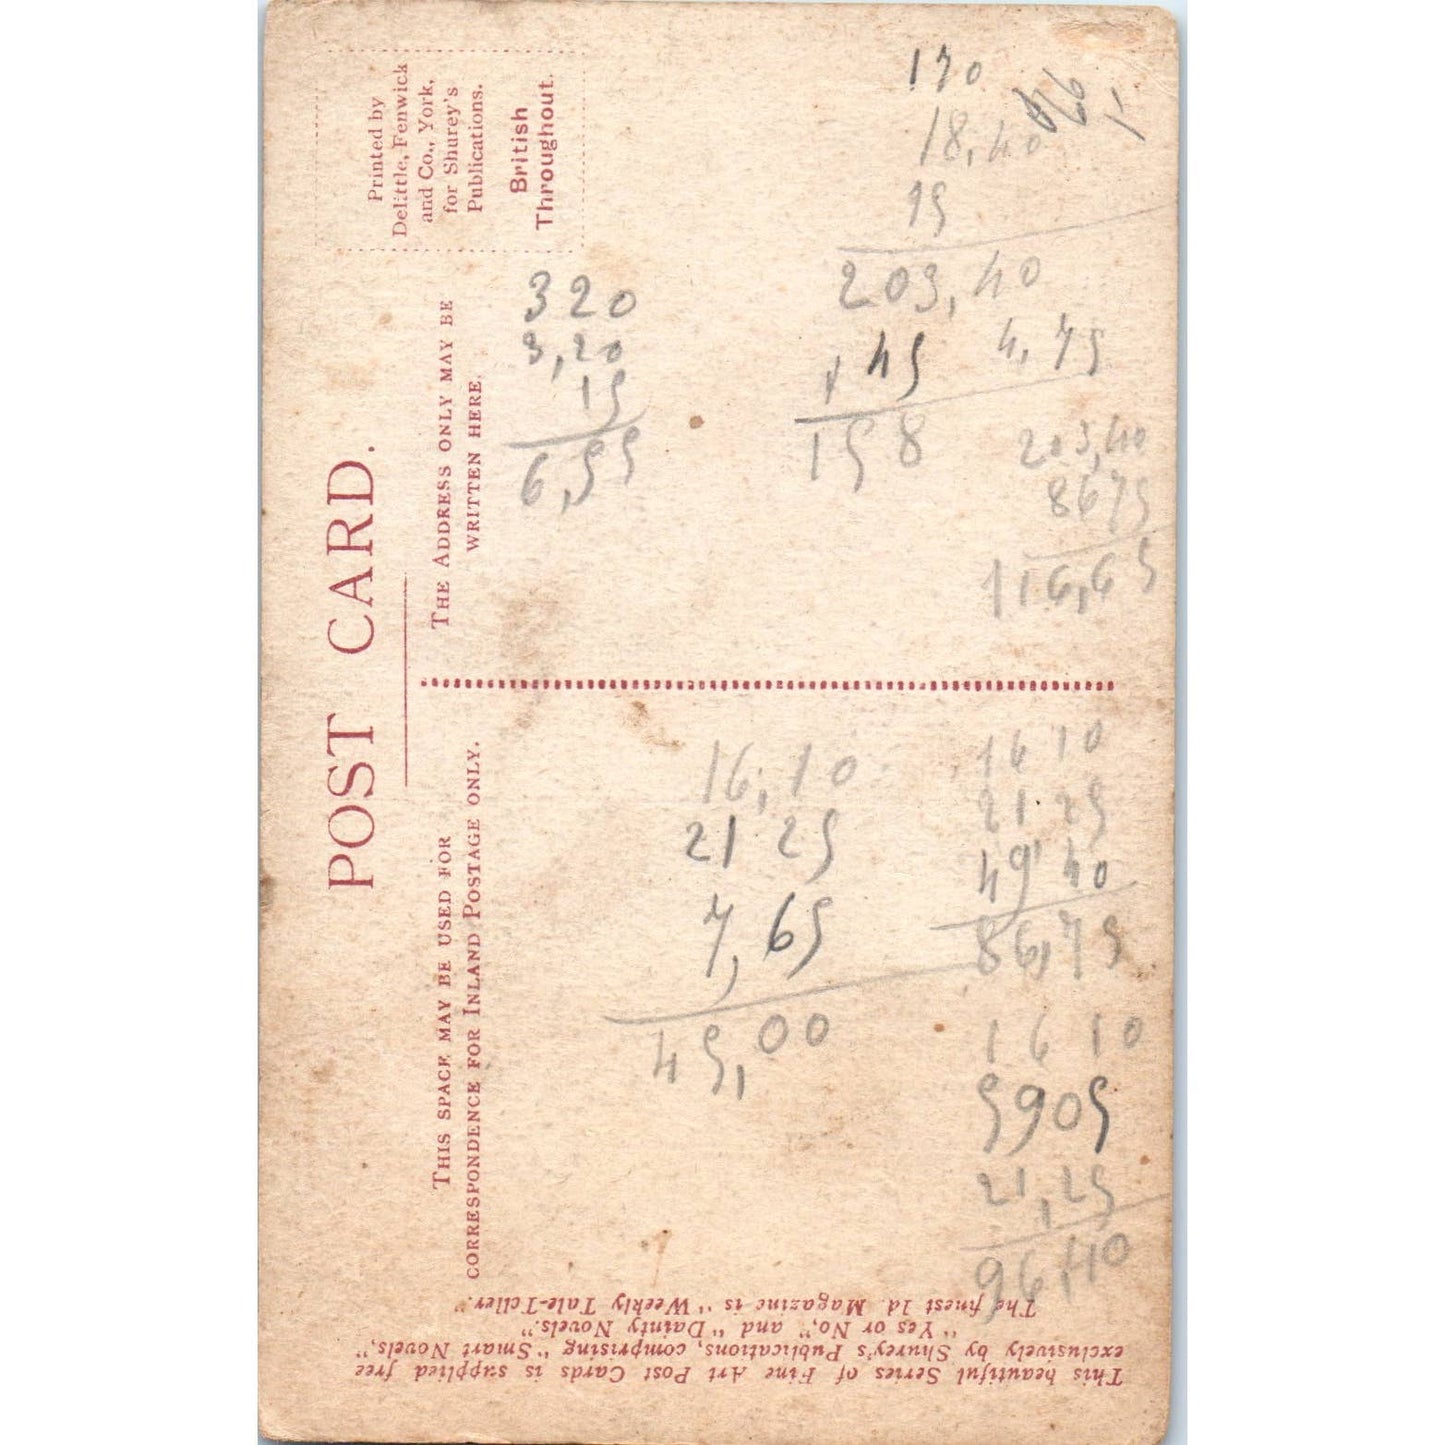 POST CARD.
Printed by
Delittle, Fenwick
and Co., York,
for Shurey's
Publications.
British
Throughout.
THIS SPACE MAY BE USED FOR
CORRESPONDENCE FOR INLAND POSTAGE ONLY.
THE ADDRESS ONLY MAY BE
WRITTEN HERE.
This beautiful Series of Fine Art Post Cards is supplied free
exclusively by Shurey's Publications, comprising "Smart Novels,"
"Yes or No," and "Dainty Novels."
The finest 1d. Magazine is "Weekly Tale-Teller."
170
18,40
15
205,40
320
3,20
15
6,55
145
158
4,75
205,40
8675
116,65
16,10
21 25
7,65
45,00
16 10
21 25
49 40
86,75
16 10
5905
21,25
96,40